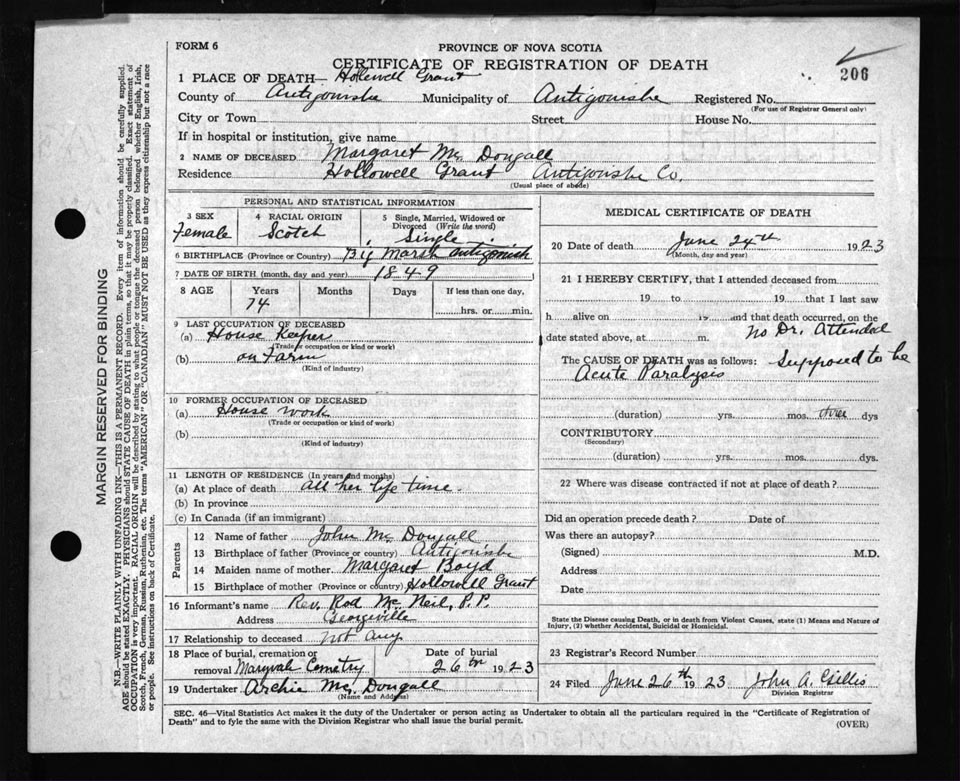 FORM 6
PROVINCE OF NOVA SCOTIA
CERTIFICATE OF REGISTRATION OF DEATH
206
1 PLACE OF DEATH— Hollewell Grant
County of Antigonishe Municipality of Antigonishe Registered No.
(For use of Registrar General only)
City or Town Street House No.
If in hospital or institution, give name
2 NAME OF DECEASED Margaret Mc Dougall
Residence Hollowell Grant Antigonishe Co.
(Usual place of abode)
PERSONAL AND STATISTICAL INFORMATION
3 SEX 4 RACIAL ORIGIN 5 Single, Married, Widowed or Divorced (Write the word)
Female Scotch Single
6 BIRTHPLACE (Province or Country) Big Marsh Antigonish
7 DATE OF BIRTH (month, day and year) 1849
8 AGE Years Months Days If less than one day,
74 hrs. or min.
9 LAST OCCUPATION OF DECEASED
(a) House Keeper
(Trade or occupation or kind or work)
(b) on Farm
(Kind of industry)
10 FORMER OCCUPATION OF DECEASED
(a) House work
(Trade or occupation or kind of work)
(b)
(Kind of industry)
11 LENGTH OF RESIDENCE (In years and months)
(a) At place of death all her life time.
(b) In province
(c) In Canada (if an immigrant)
Parents
12 Name of father John Mc Dougall
13 Birthplace of father (Province or country) Antigonishe
14 Maiden name of mother Margaret Boyd
15 Birthplace of mother (Province or country) Hollowell Grant
16 Informant's name Rev. Rod Mc Neil, P.P.
Address Georgeville
17 Relationship to deceased not any
18 Place of burial, cremation or removal Maryvale Cemetry Date of burial 26th 1923
19 Undertaker Archie Mc Dougall
(Name and Address)
MEDICAL CERTIFICATE OF DEATH
20 Date of death June 24th 1923
(Month, day and year)
21 I HEREBY CERTIFY, that I attended deceased from
19 to 19 that I last saw
h alive on 19 and that death occurred, on the
date stated above, at m. No Dr. Attended
The CAUSE OF DEATH was as follows: Supposed to be
Acute Paralysis
(duration) yrs. mos. three dys
CONTRIBUTORY
(Secondary)
(duration) yrs. mos. dys.
22 Where was disease contracted if not at place of death?
Did an operation precede death? Date of
Was there an autopsy?
(Signed) M.D.
Address
Date
State the Disease causing Death, or in death from Violent Causes, state (1) Means and Nature of
Injury, (2) whether Accidental, Suicidal or Homicidal.
23 Registrar's Record Number
24 Filed June 26th 1923 John A. Gillis
Division Registrar
SEC. 46—Vital Statistics Act makes it the duty of the Undertaker or person acting as Undertaker to obtain all the particulars required in the "Certificate of Registration of
Death" and to fyle the same with the Division Registrar who shall issue the burial permit. (OVER)
MARGIN RESERVED FOR BINDING
N.B.—WRITE PLAINLY WITH UNFADING INK—THIS IS A PERMANENT RECORD. Every item of information should be carefully supplied.
AGE should be stated EXACTLY. PHYSICIANS should STATE CAUSE OF DEATH in plain terms, so that it may be properly classified. Exact statement of
OCCUPATION is very important. RACIAL ORIGIN will be described by stating to what people or tongue the deceased person belonged, whether English, Irish,
Scotch, French, German, Russian, Ruthenian, etc. The terms "AMERICAN" OR "CANADIAN" MUST NOT BE USED as they express citizenship but not a race
or people. See instructions on back of Certificate.